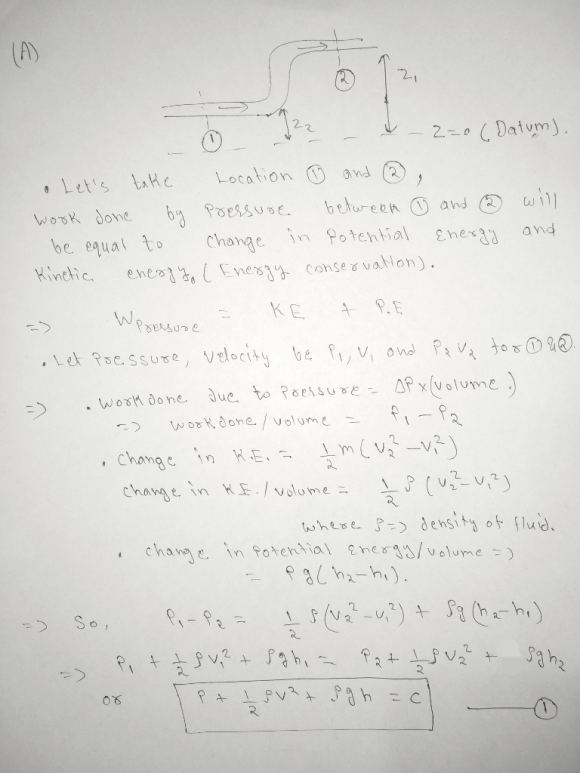 (A)
② Z₁
① Z₂ Z=0 (Datum).
• Let's take Location ① and ②,
Work done by Pressure between ① and ② will
be equal to change in Potential Energy and
Kinetic energy. (Energy conservation).
=> W Pressure = KE + P.E
• Let Pressure, Velocity be P₁, V₁ and P₂ V₂ for ① & ②.
=> • Work done due to Pressure = ΔP x (volume.)
=> work done / volume = P₁ - P₂
• Change in K.E. = 1/2 m (V₂² - V₁²)
change in K.E. / volume = 1/2 ρ (V₂² - V₁²)
where ρ => density of fluid.
• change in Potential Energy / volume =>
= ρg(h₂-h₁).
=> So, P₁-P₂ = 1/2 ρ(V₂²-V₁²) + ρg(h₂-h₁)
=> P₁ + 1/2 ρV₁² + ρgh₁ = P₂ + 1/2 ρV₂² + ρgh₂
or P + 1/2 ρV² + ρgh = C ①